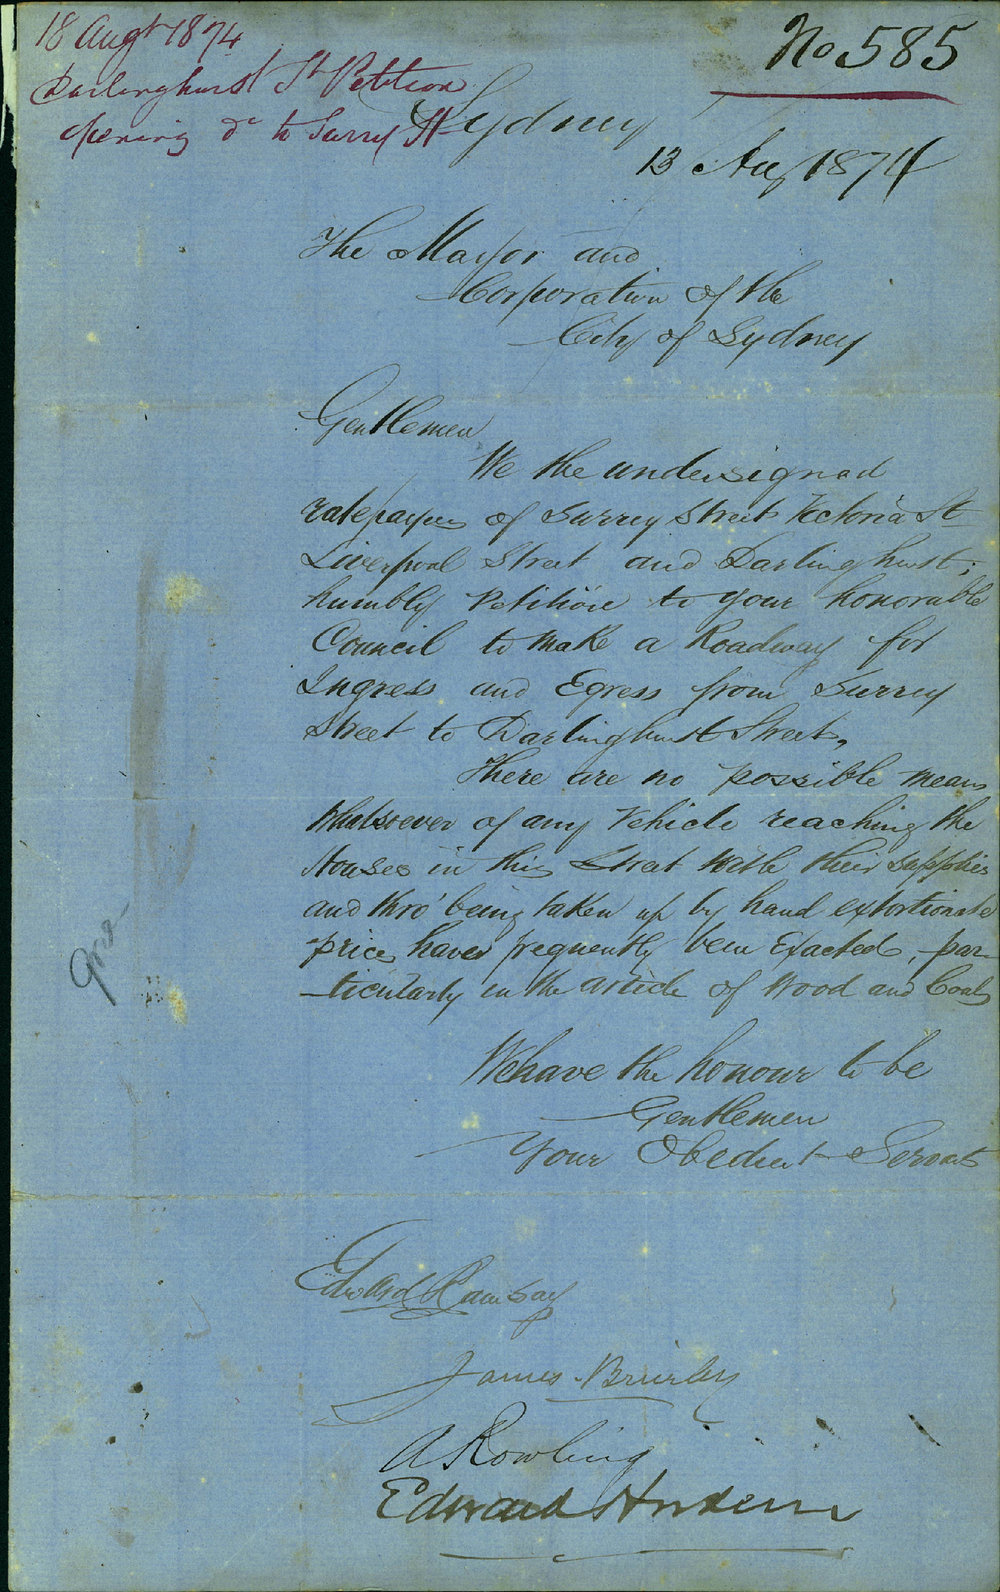 18 Augt 1874
Darlinghurst St Petition
opening do to Surry St
No 585
Sydney
13 Aug 1874
The Mayor and
Corporation of the
City of Sydney
Gentlemen
We the undersigned
ratepayers of Surrey Street Victoria St
Liverpool Street and Darlinghurst;
humbly Petition to your honorable
Council to make a Roadway for
Ingress and Egress from Surrey
Street to Darlinghurst Street,
There are no possible means
Whatsoever of any Vehicle reaching the
Houses in this Street with their supplies
and thro' being taken up by hand extortionate
prices have frequently been Exacted, par-
-ticularly in the article of Wood and Coals
We have the honour to be
Gentlemen
Your Obedient Servants
Edward Ramsay
James Brierley
A Rowling
Edward